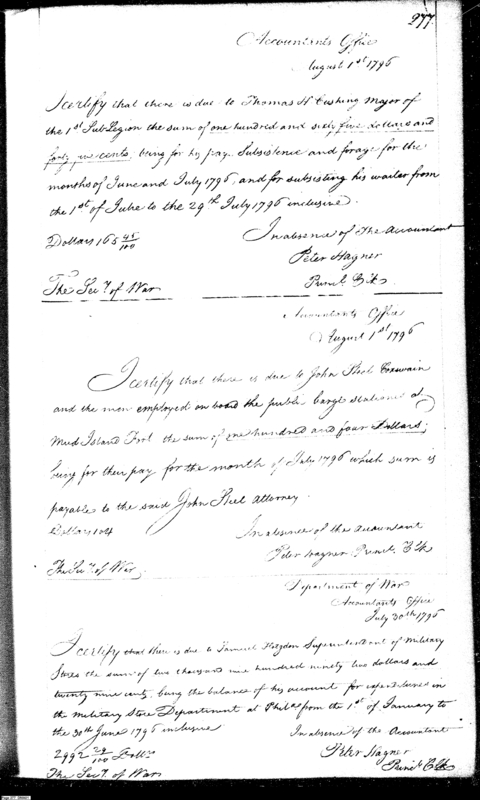 277.
Accountants Office
August 1st 1796
I certify that there is due to Thomas H Cushing Major of
the 1st Sub Legion the sum of one hundred and sixty five dollars and
forty five cents, being for his pay, Subsistence and forage for the
months of June and July 1796, and for subsisting his waiter from
the 1st of June to the 29th July 1796 inclusive.
Dollars 165 45/100
In absence of the Accountant
Peter Hagner
Princl. Clk.
The Secy. of War
Accountants Office
August 1st 1796
I certify that there is due to John Steel Coxswain
and the men employed on board the public barge stationed at
Mud Island Fort the sum of one hundred and four Dollars;
being for their pay for the month of July 1796 which sum is
payable to the said John Steel Attorney.
Dollars 104
In absence of the accountant
Peter Hagner Princl. Clk
The Secy. of War
Department of War
Accountants Office
July 30th 1796
I certify that there is due to Samuel Hodgdon Superintendant of Military
Stores the sum of two thousand nine hundred ninety two dollars and
twenty nine cents, being the balance of his account for expenditures in
the Military Store Department at Philaa from the 1st of January to
the 30th June 1796 inclusive
In absence of the Accountant
2992 29/100 Dollrs
Peter Hagner
Princl. Clk
The Secy. of War